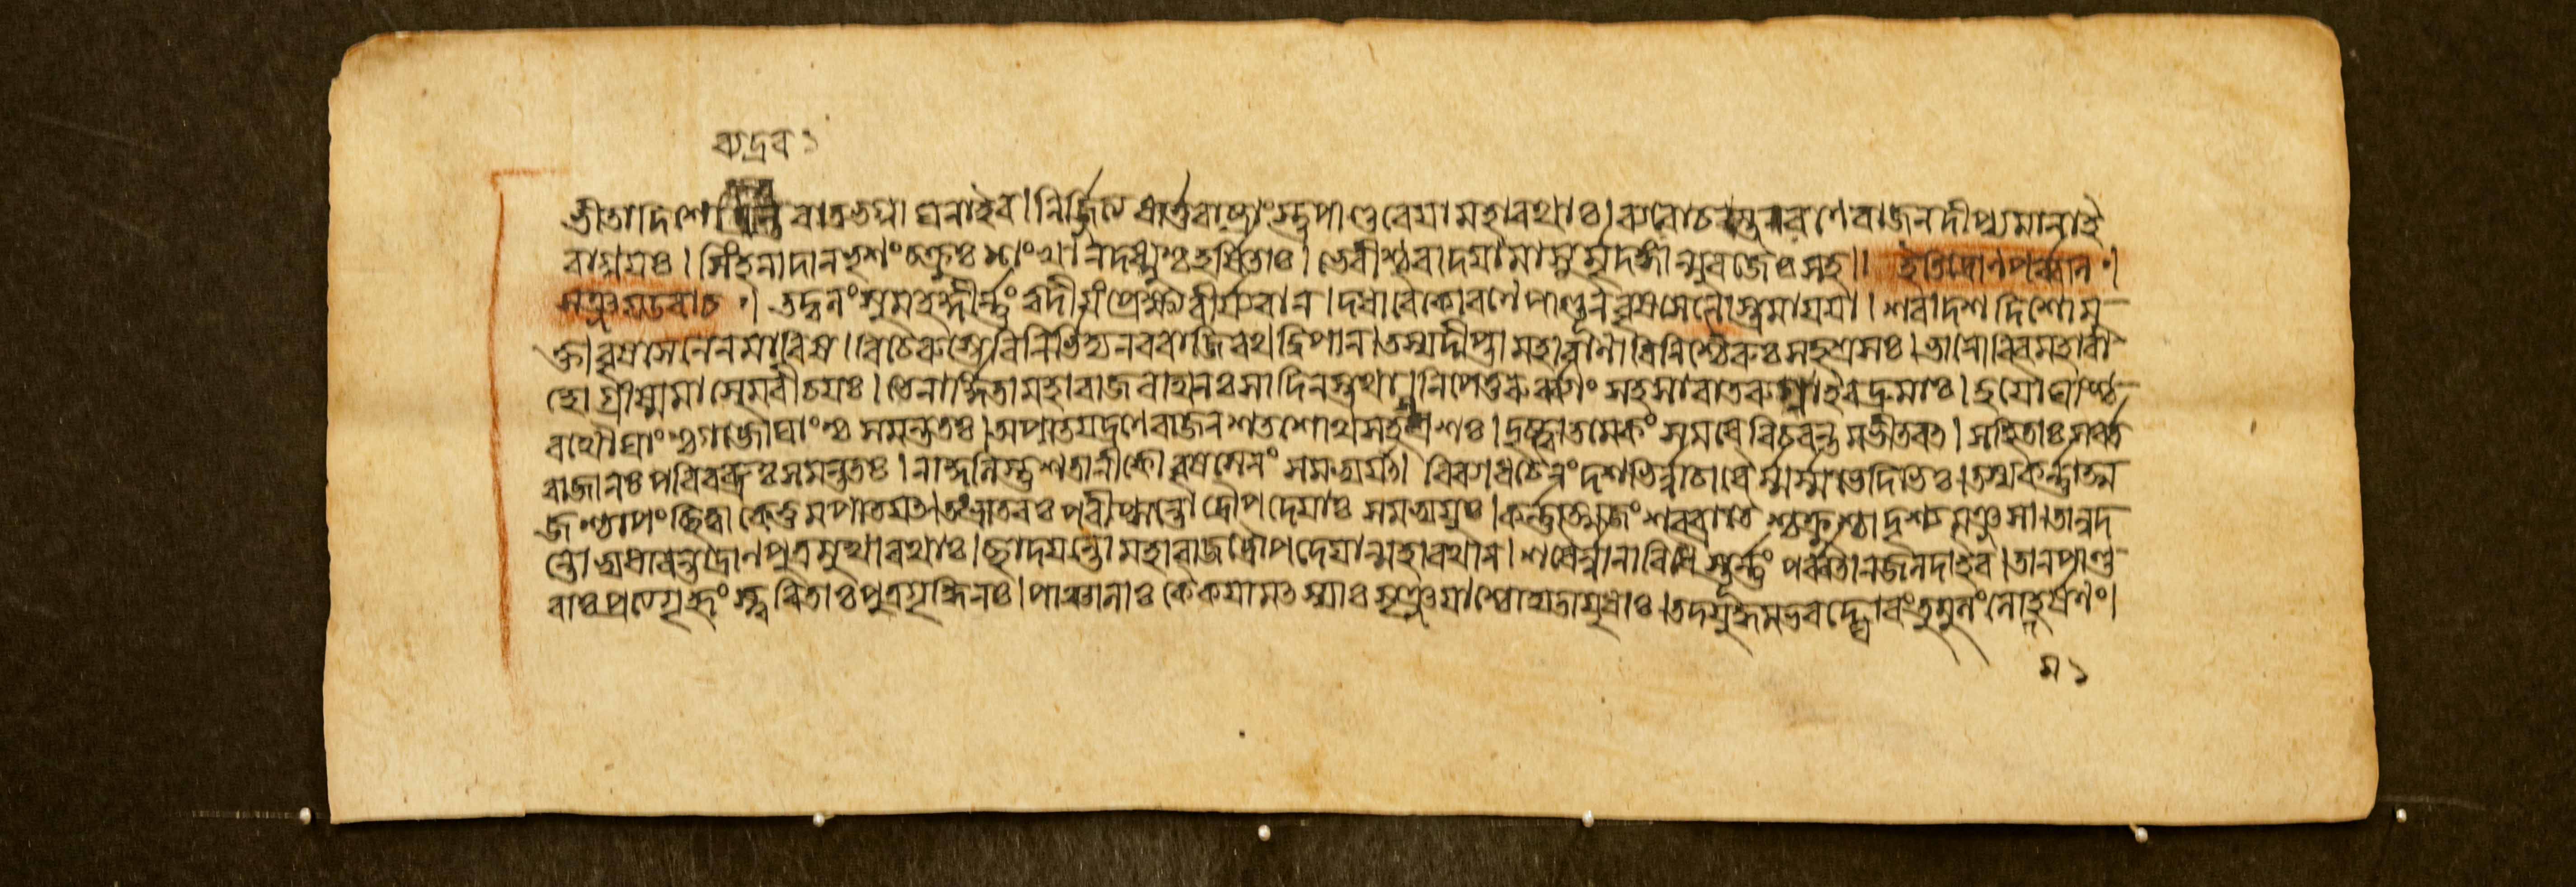 ভীতাদিশো বাতভগ্না ঘনাইব। নির্জ্জিত্য ধার্ত্তরাষ্ট্রাংস্তু পাণ্ডবেয়া মহারথাঃ। ব্যরোচন্ত রণে রাজন দীপ্যমানাই
বাগ্নয়ঃ। সিংহনাদান ভৃশং চক্রুঃ শংখান দধ্মুশ্চ হর্ষিতাঃ। ভেরীশ্চ বাদয়ামাসুর্মৃদঙ্গান্মুরজৈঃ সহ।। ইতি দ্রোণপর্ব্বণি।
সঞ্জয়উবাচ। তদ্বলং সুমহদ্দীর্ন্নং ত্বদীয়ং প্রেক্ষ্য বীর্য্যবান। দধারৈকোরণে পাণ্ডূন বৃষসেনোস্ত্রমায়য়া। শরাদশ দিশোমু
ক্তা বৃষসেনেনমারিষ। বিচেরুস্তে বিনির্ভিদ্যনরবাজিরথদ্বিপান। তস্যদীপ্তা মহাবাণা বিনিশ্চেরুঃ সহস্রসঃ। ভানোরিবমহাবা
হো গ্রীষ্মমাসেমরীচয়ঃ। তেনার্দ্দিতামহারাজ সাদিনস্তথা। নিপেতুরুর্ব্যাং সহসাবাতরুগ্নাইবদ্রুমাঃ। হয়ৌঘাংশ্চ
রথৌঘাংশ্চগজৌঘাংশ্চ সমন্ততঃ। অপাতয়দ্রণেরাজন শতশোথ সহস্রশঃ। দৃষ্ট্বাতমেবং সমরে বিচরন্তমভীতবত। সহিতাঃ সর্ব্ব
রাজানঃ পরিবব্রুঃ সমন্ততঃ। নাকুলিস্তুশতানীকো বৃষসেনং সমভ্যয়াত। বিব্যাধচৈনং দশভির্ন্নারাচৈর্ম্মর্ম্মভেদিভিঃ। তস্যকর্ন্নাত্ম
জশ্চাপং ছিত্বা কেতুমপাতয়ত। তংভ্রাতরঃ পরীপ্সন্তো দ্রৌপদেয়াঃ সমভ্যয়ুঃ। কর্ন্নাত্মজং শরব্রাতৈশ্চক্রুশ্চাদৃশ্যমঞ্জসা। তান্নদ
ন্তোভ্যধাবন্তদ্রোণপুত্রমুখারথাঃ। ছাদয়ন্তো মহারাজদ্রৌপদেয়ান্মহারথান। শরৈর্ন্নানাবিধৈস্তূর্ন্নং পর্ব্বতানজলদাইব। তানপাণ্ড
বাঃ প্রত্যগৃহ্নংস্ত্বরিতাঃ পুত্রগৃদ্ধিনঃ। পাঞ্চালাঃ কেকয়ামৎস্যাঃ সৃঞ্জয়াশ্চোদ্যতায়ুধাঃ। তদ্যুদ্ধমভবদ্ঘোরং তুমুলং লোহর্ষণং।
ম ১